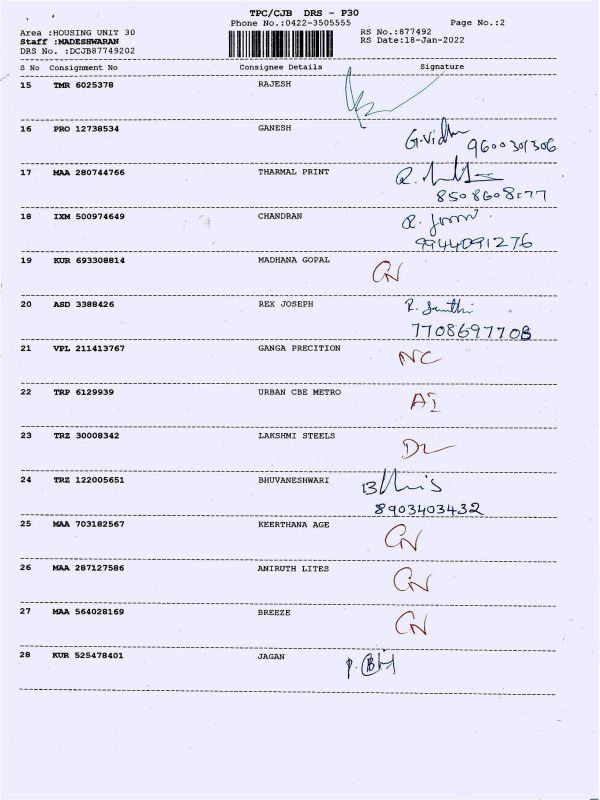 TPC/CJB DRS - P30
Phone No.:0422-3505555 Page No.:2
Area :HOUSING UNIT 30 RS No.:877492
Staff :MADESHWARAN RS Date:18-Jan-2022
DRS No. :DCJB87749202
S No Consignment No Consignee Details Signature
15 TMR 6025378 RAJESH
16 PRO 12738534 GANESH G.Vidhu
9600301306
17 MAA 280744766 THARMAL PRINT
8508608177
18 IXM 500974649 CHANDRAN
9944091276
19 KUR 693308814 MADHANA GOPAL CN
20 ASD 3388426 REX JOSEPH R. Santhi
7708697708
21 VPL 211413767 GANGA PRECITION NC
22 TRP 6129939 URBAN CBE METRO AI
23 TRZ 30008342 LAKSHMI STEELS DL
24 TRZ 122005651 BHUVANESHWARI
8903403432
25 MAA 703182567 KEERTHANA AGE CN
26 MAA 287127586 ANIRUTH LITES CN
27 MAA 564028169 BREEZE CN
28 KUR 525478401 JAGAN